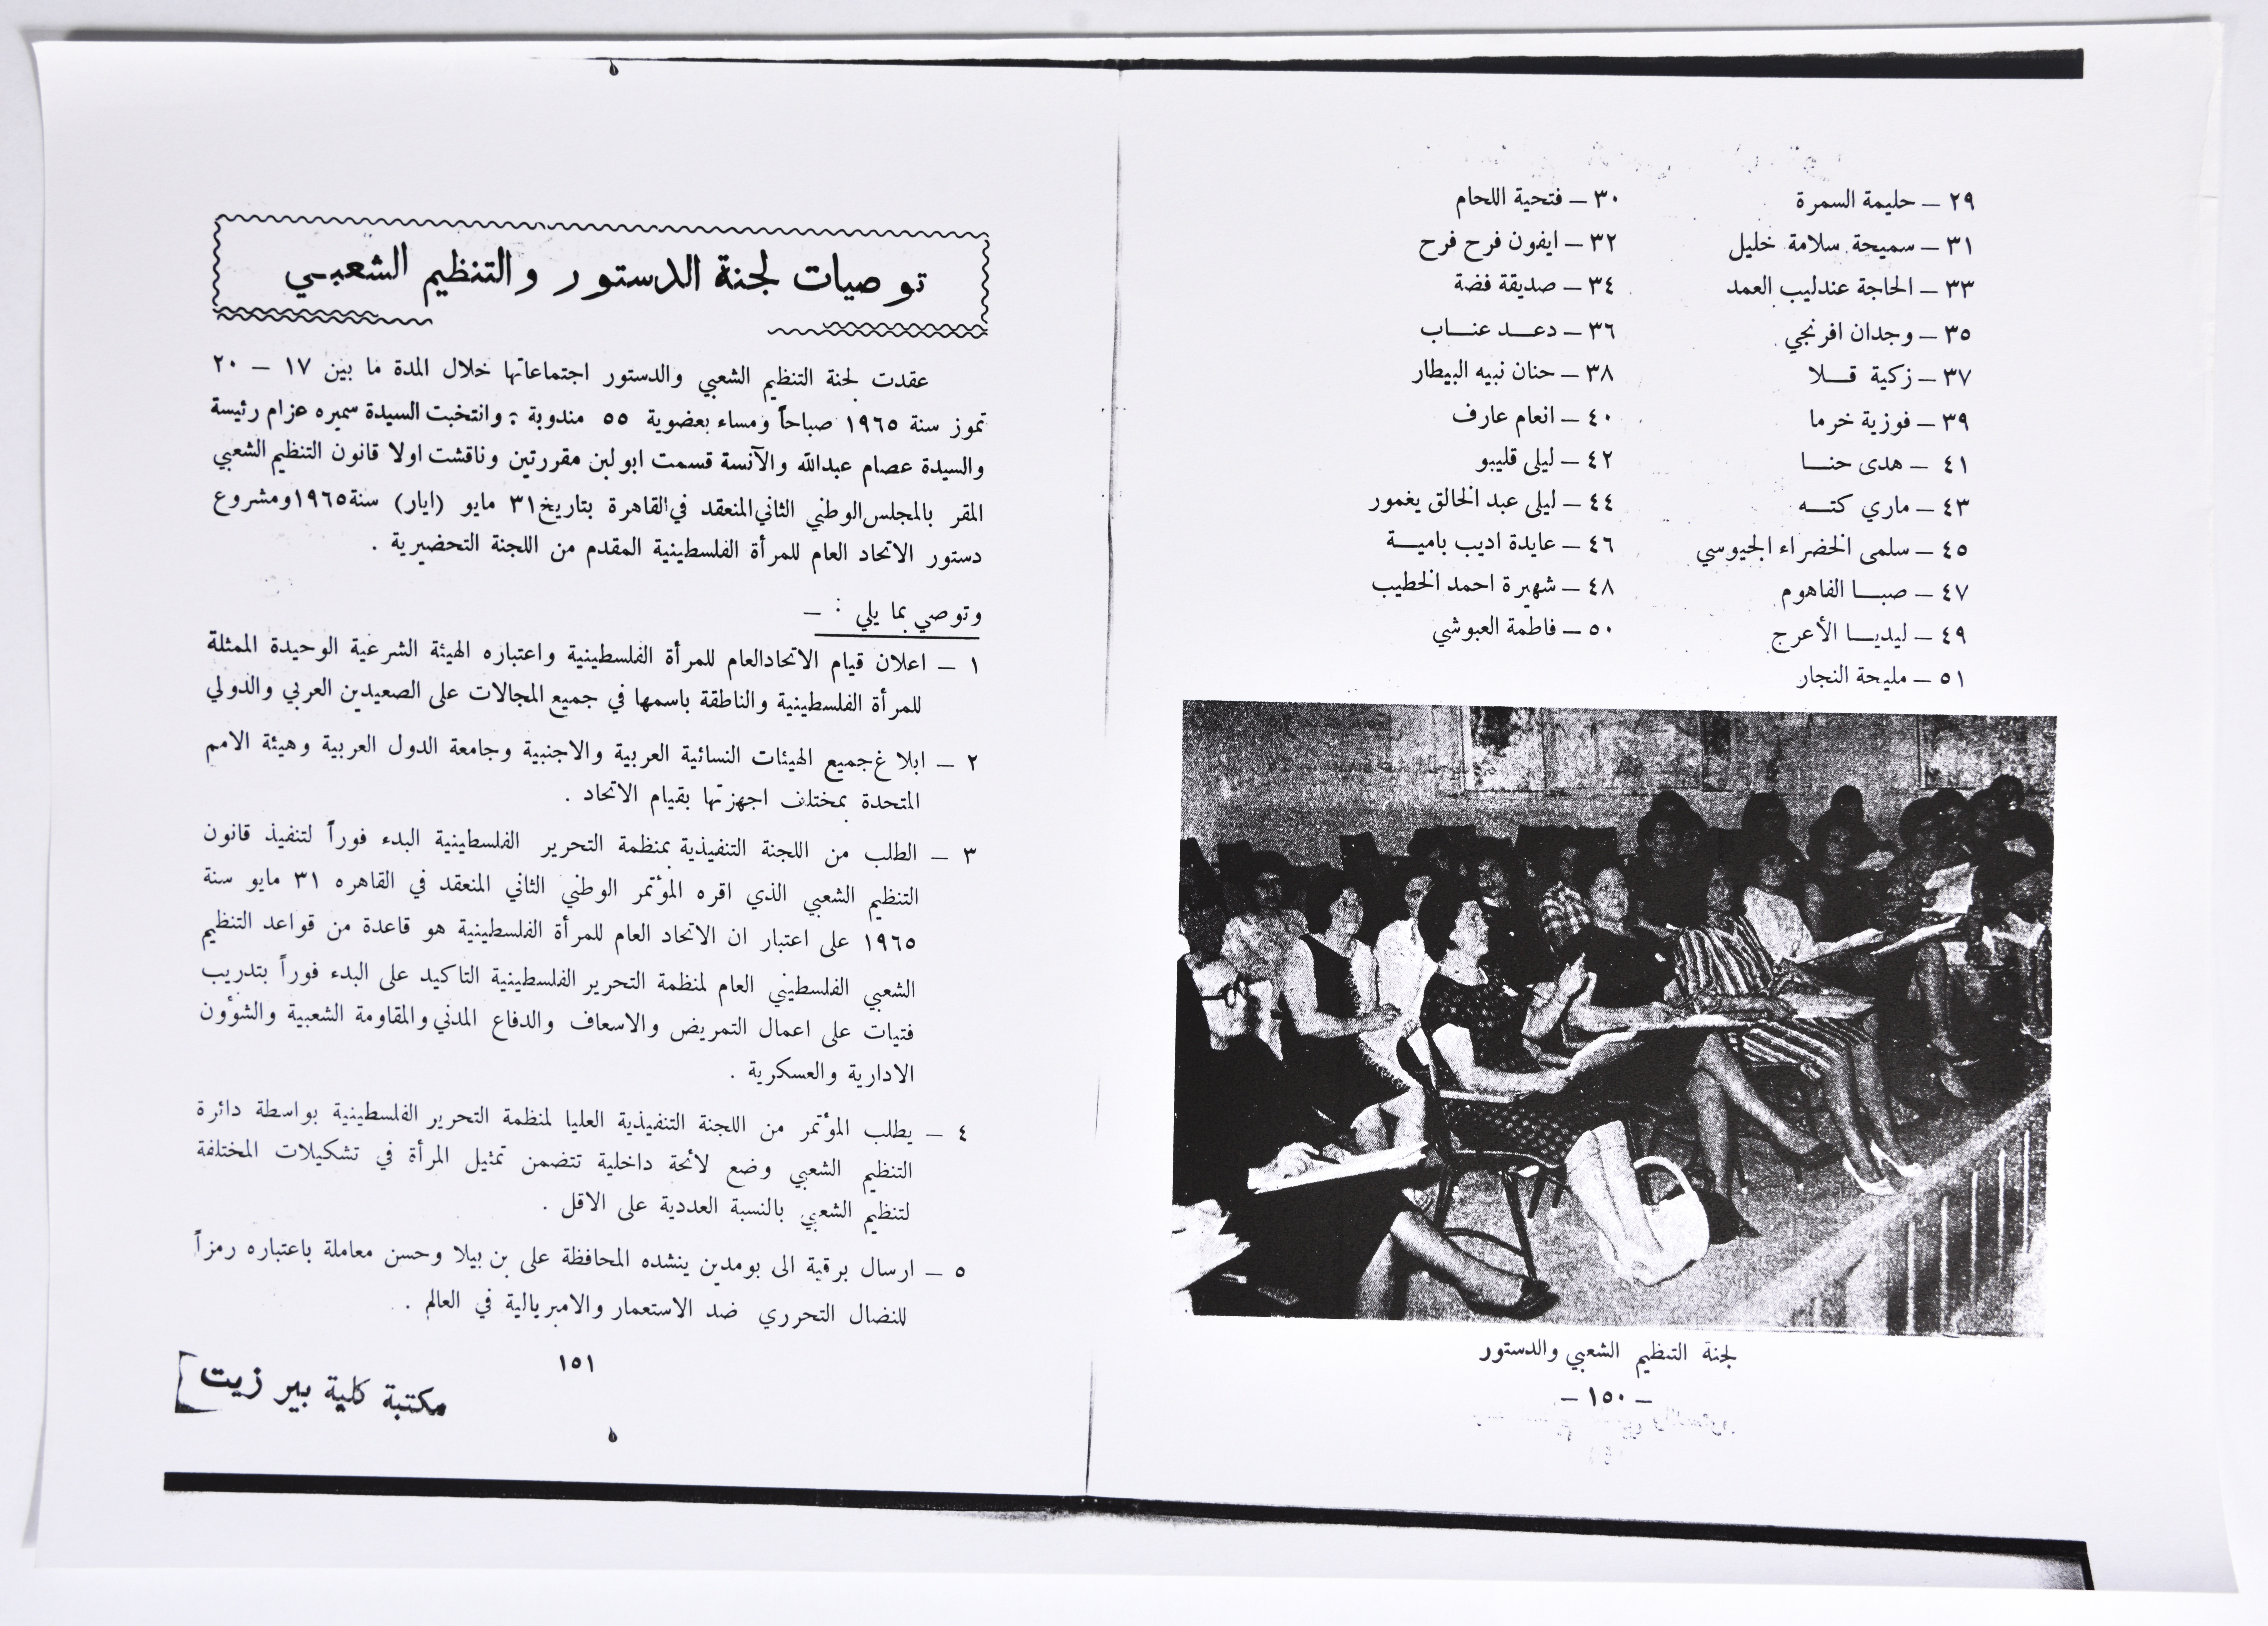 ٢٩ – حليمة السمرة ٣٠ – فتحية اللحام
٣١ – سميحة سلامة خليل ٣٢ – ايفون فرح فرح
٣٣ – الحاجة عندليب العمد ٣٤ – صديقة فضة
٣٥ – وجدان افرنجي ٣٦ – دعد عناب
٣٧ – زكية قلا ٣٨ – حنان نبيه البيطار
٣٩ – فوزية خرما ٤٠ – انعام عارف
٤١ – هدى حنا ٤٢ – ليلى قليبو
٤٣ – ماري كته ٤٤ – ليلى عبد الخالق يغمور
٤٥ – سلمى الخضراء الجيوسي ٤٦ – عايدة اديب بامية
٤٧ – صبا الفاهوم ٤٨ – شهيرة احمد الخطيب
٤٩ – ليديا الأعرج ٥٠ – فاطمة العبوشي
٥١ – مليحة النجار
لجنة التنظيم الشعبي والدستور
– ١٥٠ –
توصيات لجنة الدستور والتنظيم الشعبي
عقدت لجنة التنظيم الشعبي والدستور اجتماعاتها خلال المدة ما بين ١٧ – ٢٠
تموز سنة ١٩٦٥ صباحاً ومساء بعضوية ٥٥ مندوبة ; وانتخبت السيدة سميره عزام رئيسة
والسيدة عصام عبدالله والآنسة قسمت ابولبن مقررتين وناقشت اولا قانون التنظيم الشعبي
المقر بالمجلس الوطني الثاني المنعقد في القاهرة بتاريخ ٣١ مايو (ايار) سنة ١٩٦٥ ومشروع
دستور الاتحاد العام للمرأة الفلسطينية المقدم من اللجنة التحضيرية .
وتوصي بما يلي : –
١ – اعلان قيام الاتحاد العام للمرأة الفلسطينية واعتباره الهيئة الشرعية الوحيدة الممثلة
للمرأة الفلسطينية والناطقة باسمها في جميع المجالات على الصعيدين العربي والدولي
٢ – ابلاغ جميع الهيئات النسائية العربية والاجنبية وجامعة الدول العربية وهيئة الامم
المتحدة بمختلف اجهزتها بقيام الاتحاد .
٣ – الطلب من اللجنة التنفيذية بمنظمة التحرير الفلسطينية البدء فوراً لتنفيذ قانون
التنظيم الشعبي الذي اقره المؤتمر الوطني الثاني المنعقد في القاهره ٣١ مايو سنة
١٩٦٥ على اعتبار ان الاتحاد العام للمرأة الفلسطينية هو قاعدة من قواعد التنظيم
الشعبي الفلسطيني العام لمنظمة التحرير الفلسطينية التاكيد على البدء فوراً بتدريب
فتيات على اعمال التمريض والاسعاف والدفاع المدني والمقاومة الشعبية والشؤون
الادارية والعسكرية .
٤ – يطلب المؤتمر من اللجنة التنفيذية العليا لمنظمة التحرير الفلسطينية بواسطة دائرة
التنظيم الشعبي وضع لائحة داخلية تتضمن تمثيل المرأة في تشكيلات المختلفة
لتنظيم الشعبي بالنسبة العددية على الاقل .
٥ – ارسال برقية الى بومدين ينشده المحافظة على بن بيلا وحسن معاملة باعتباره رمزاً
للنضال التحرري ضد الاستعمار والامبريالية في العالم .
١٥١
مكتبة كلية بير زيت